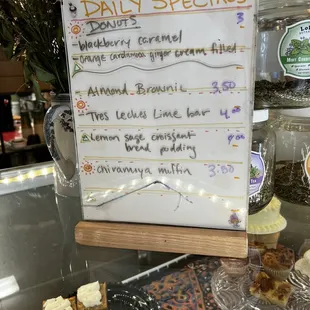 DAILY SPECIALS
DONUTS 3
blackberry caramel
orange cardamom ginger cream filled
Almond Brownie 3.50
Tres Leches Lime bar 4.00
Lemon sage croissant
bread pudding
Chiramoya muffin 3.50